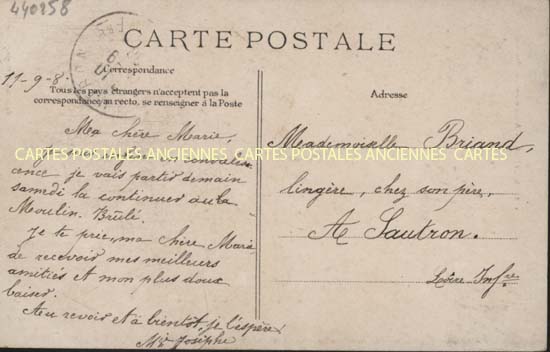 440258
CARTE POSTALE
11-9-8.
Correspondance
Tous les pays étrangers n'acceptent pas la
correspondance au recto, se renseigner à la Poste
Adresse
Ma chère Marie,
CARTES POSTALES ANCIENNES CARTES POSTALES ANCIENNES CARTES
Je
ence je vais partir demain
samedi la continuer au
Moulin-Brûlé.
Je te prie, ma chère Marie
de recevoir mes meilleurs
amitiés et mon plus doux
baiser.
Au revoir et à bientôt, je l'espère
Josèphe
Mademoiselle Briand,
lingère, chez son père,
A Sautron.
Loire Infre